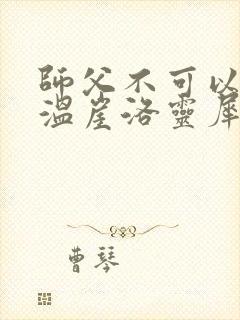 師父不可以
溫崖洛靈犀
曹琴